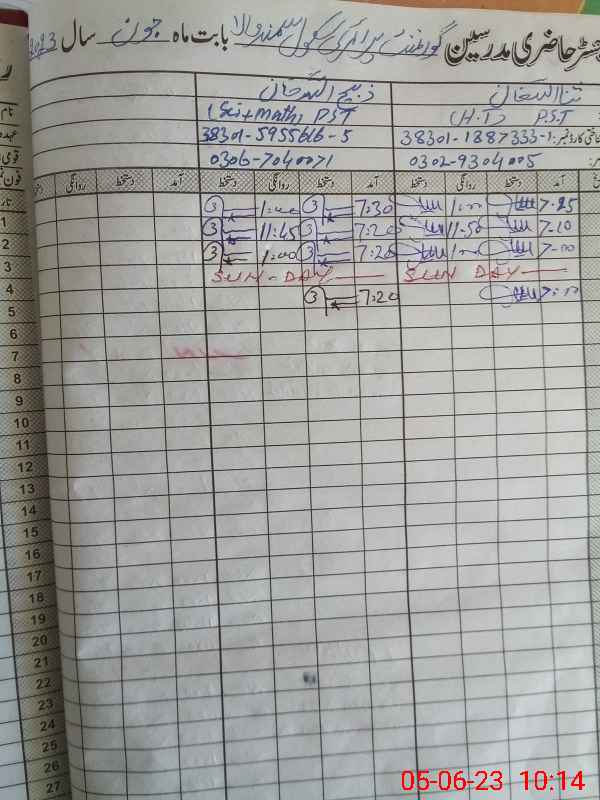 رجسٹر حاضری مدرسین گورنمنٹ پرائمری سکول سمندوالا بابت ماہ جون سال 2023
ثناء اللہ خان ذبیح اللہ خان
(H.T) P.S.T (Sci+math) PST
38301-1887333-1 38301-5955616-5
0302-9304005 0306-7040071
آمد دستخط روانگی دستخط آمد دستخط روانگی دستخط آمد دستخط روانگی
1 7-25 1-00 7:30 1:00
2 7-10 11-50 7:20 11:45
3 7-00 1-00 7:20 1:00
4 SUN DAY SUN-DAY
5 7-10 7:20
6
7
8
9
10
11
12
13
14
15
16
17
18
19
20
21
22
23
24
25
26
27
05-06-23 10:14